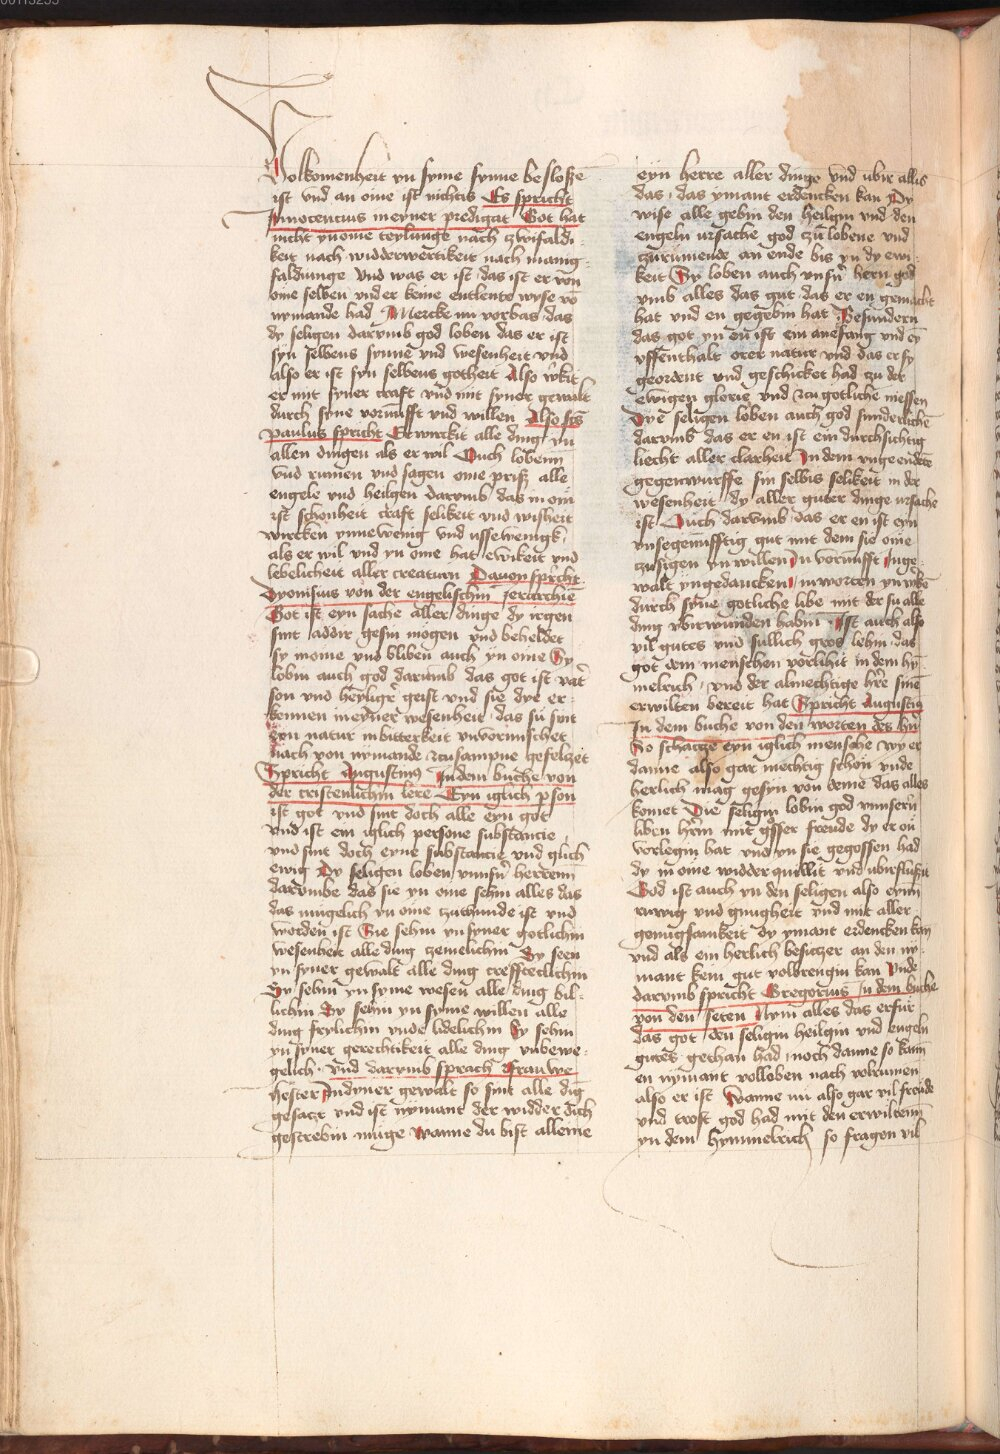 Volkomenheit yn syme synne besloße
ist vnd an oͤme ist nichtis Es spricht
Innocencius meyner predigat Got hat
nicht yn ome teylunge nach zwifaldi
keit nach widderwertikeit nach manig
faldunge Vnd was er ist das ist er von
ome selben vnd er keine entlente wyse vō
nymande had Mercke nu vorbas das
dy seligen darvmb god loben das er ist
syn selbens synne vnd wesenheit vnd
also er ist syn selbens gotheit Also wͥkit
er mit syner craft vnd mit syner gewalt
durch syne vornūfft vnd willen Also sts
paulus spricht Er wirckit alle ding yn
allen dingen als er wil Ouch lobenn
vnd rumen vnd sagen ome priß alle
engele vnd heilgen darvmb das in om
ist schonheit craft selikeit vnd wisheit
wircken ynnewenig vnd vssewenigk
als er wil vnd yn ome hat ewikeit vnd
lebelicheit aller creaturn Dauon spricht
Dyonisius von der engelischin jerarchie
Got ist eyn sache aller dinge dy irgen
sint adder gesin mogen vnd beheldet
sy in ome vnd bliben auch yn ome Sy
lobin auch god darumb das got ist vatͥ
son vnd heyligͥ geist vnd sie dye er
kennen in eyner wesenheit das sii sint
eyn natur in bitterkeit vnvormischet
nach von nymande zcusampne gefelzet
Spricht Augustinꝰ In dem buche von
der cristenlichin lere Eyn iglich pson
ist got vnd sint doch alle eyn got
vnd ist ein iglich persone substancie
vnd sint doch eyne substancie vnd glich
ewig Dy seligen loben vnnsͥn herrenn
darvmbe das sie yn ome sehin alles das
das mugelich yn ome zcuthunde ist vnd
worden ist Sie sehin yn syner gotlichin
wesenheit alle ding zemelichin Sy seen
yn syner gewalt alle ding creffteclichin
Sy sehin yn syme wesen alle ding bil
lichin Sy sehin yn syme willen alle
ding frylichin vnde lidelichin Sy sehin
yn syner gerechtikeit alle ding vnbewe
gelich Vnd darvmb sprach frauwe
hester In dyner gewalt so sint alle dīg
gesatzt vnd ist nymant der widder dich
gestrebin muge wanne du bist alleine
eyn herre aller dinge vnd ubir allis
das das ymant erdencken kan Dy
wise alle gebin den heilgin vnd den
engeln vrsache god zu lobene vnd
zurumende an ende bis yn dy ewi
keit Sy loben auch vnsͥn hern god
vmb alles das gut das er en gemacht
hat vnd en gegebin hat Besundern
das got yn en ist ein anefang vnd ey
vffenthalt orer natur vnd das er sy
geordent vnd geschicket had zu der
ewigen glorie vnd zcu gotliche niessen
Dye seligen loben auch god sunderliche
darvmb das er en ist ein durchsichtig
liecht aller clarheit In dem vngeendete
gegenwurffe sin selbis selikeit in der
wesenheit dy aller guter dinge vrsache
ist Ouch darvmb das er en ist eyn
vnsegenufftig gut mit dem sie ome
czusigen yn willen In vornufft Inge
walt yn gedancken in worten yn wͥke
durch syne gotliche libe mit der su alle
ding vbirwunden habin Ist auch also
vil gutes vnd sullich gros lebin das
got dem menschen vorlihit in dem hy
melrich vnd der almechtige hͥre sine
erwilten bereit hat Spricht Augustin
In dem buche von den worten des hͥn
So schatze eyn iglich mensche wy er
danne also gar mechtig schon vnde
herlich mag gesyn von deme das alles
komet Die seligin lobin god vnnsern
liben hͥrn mit gͦsser freude dy er on
vorlegin hat vnd yn sie gegossen had
dy in ome widder quillit vnd ubirflussit
God ist auch yn den seligen also eynn
ruwig vnd gnugheit vnd mit aller
genugsamkeit dy ymant erdencken kan
vnd als ein herlich besitzer an den ny
mant kein gut volbrengin kan Vnde
darvmb spricht Gregorius in dem buche
von den seten Nym alles das erfur
das got den seligin heilgin vnd engeln
gutes gethan had noch danne so kann
en nymant volloben nach volrumen
also er ist Wanne nu also gar vil freude
vnd trost god had mit den erwiltenn
yn dem hymmelrich so fragen vil